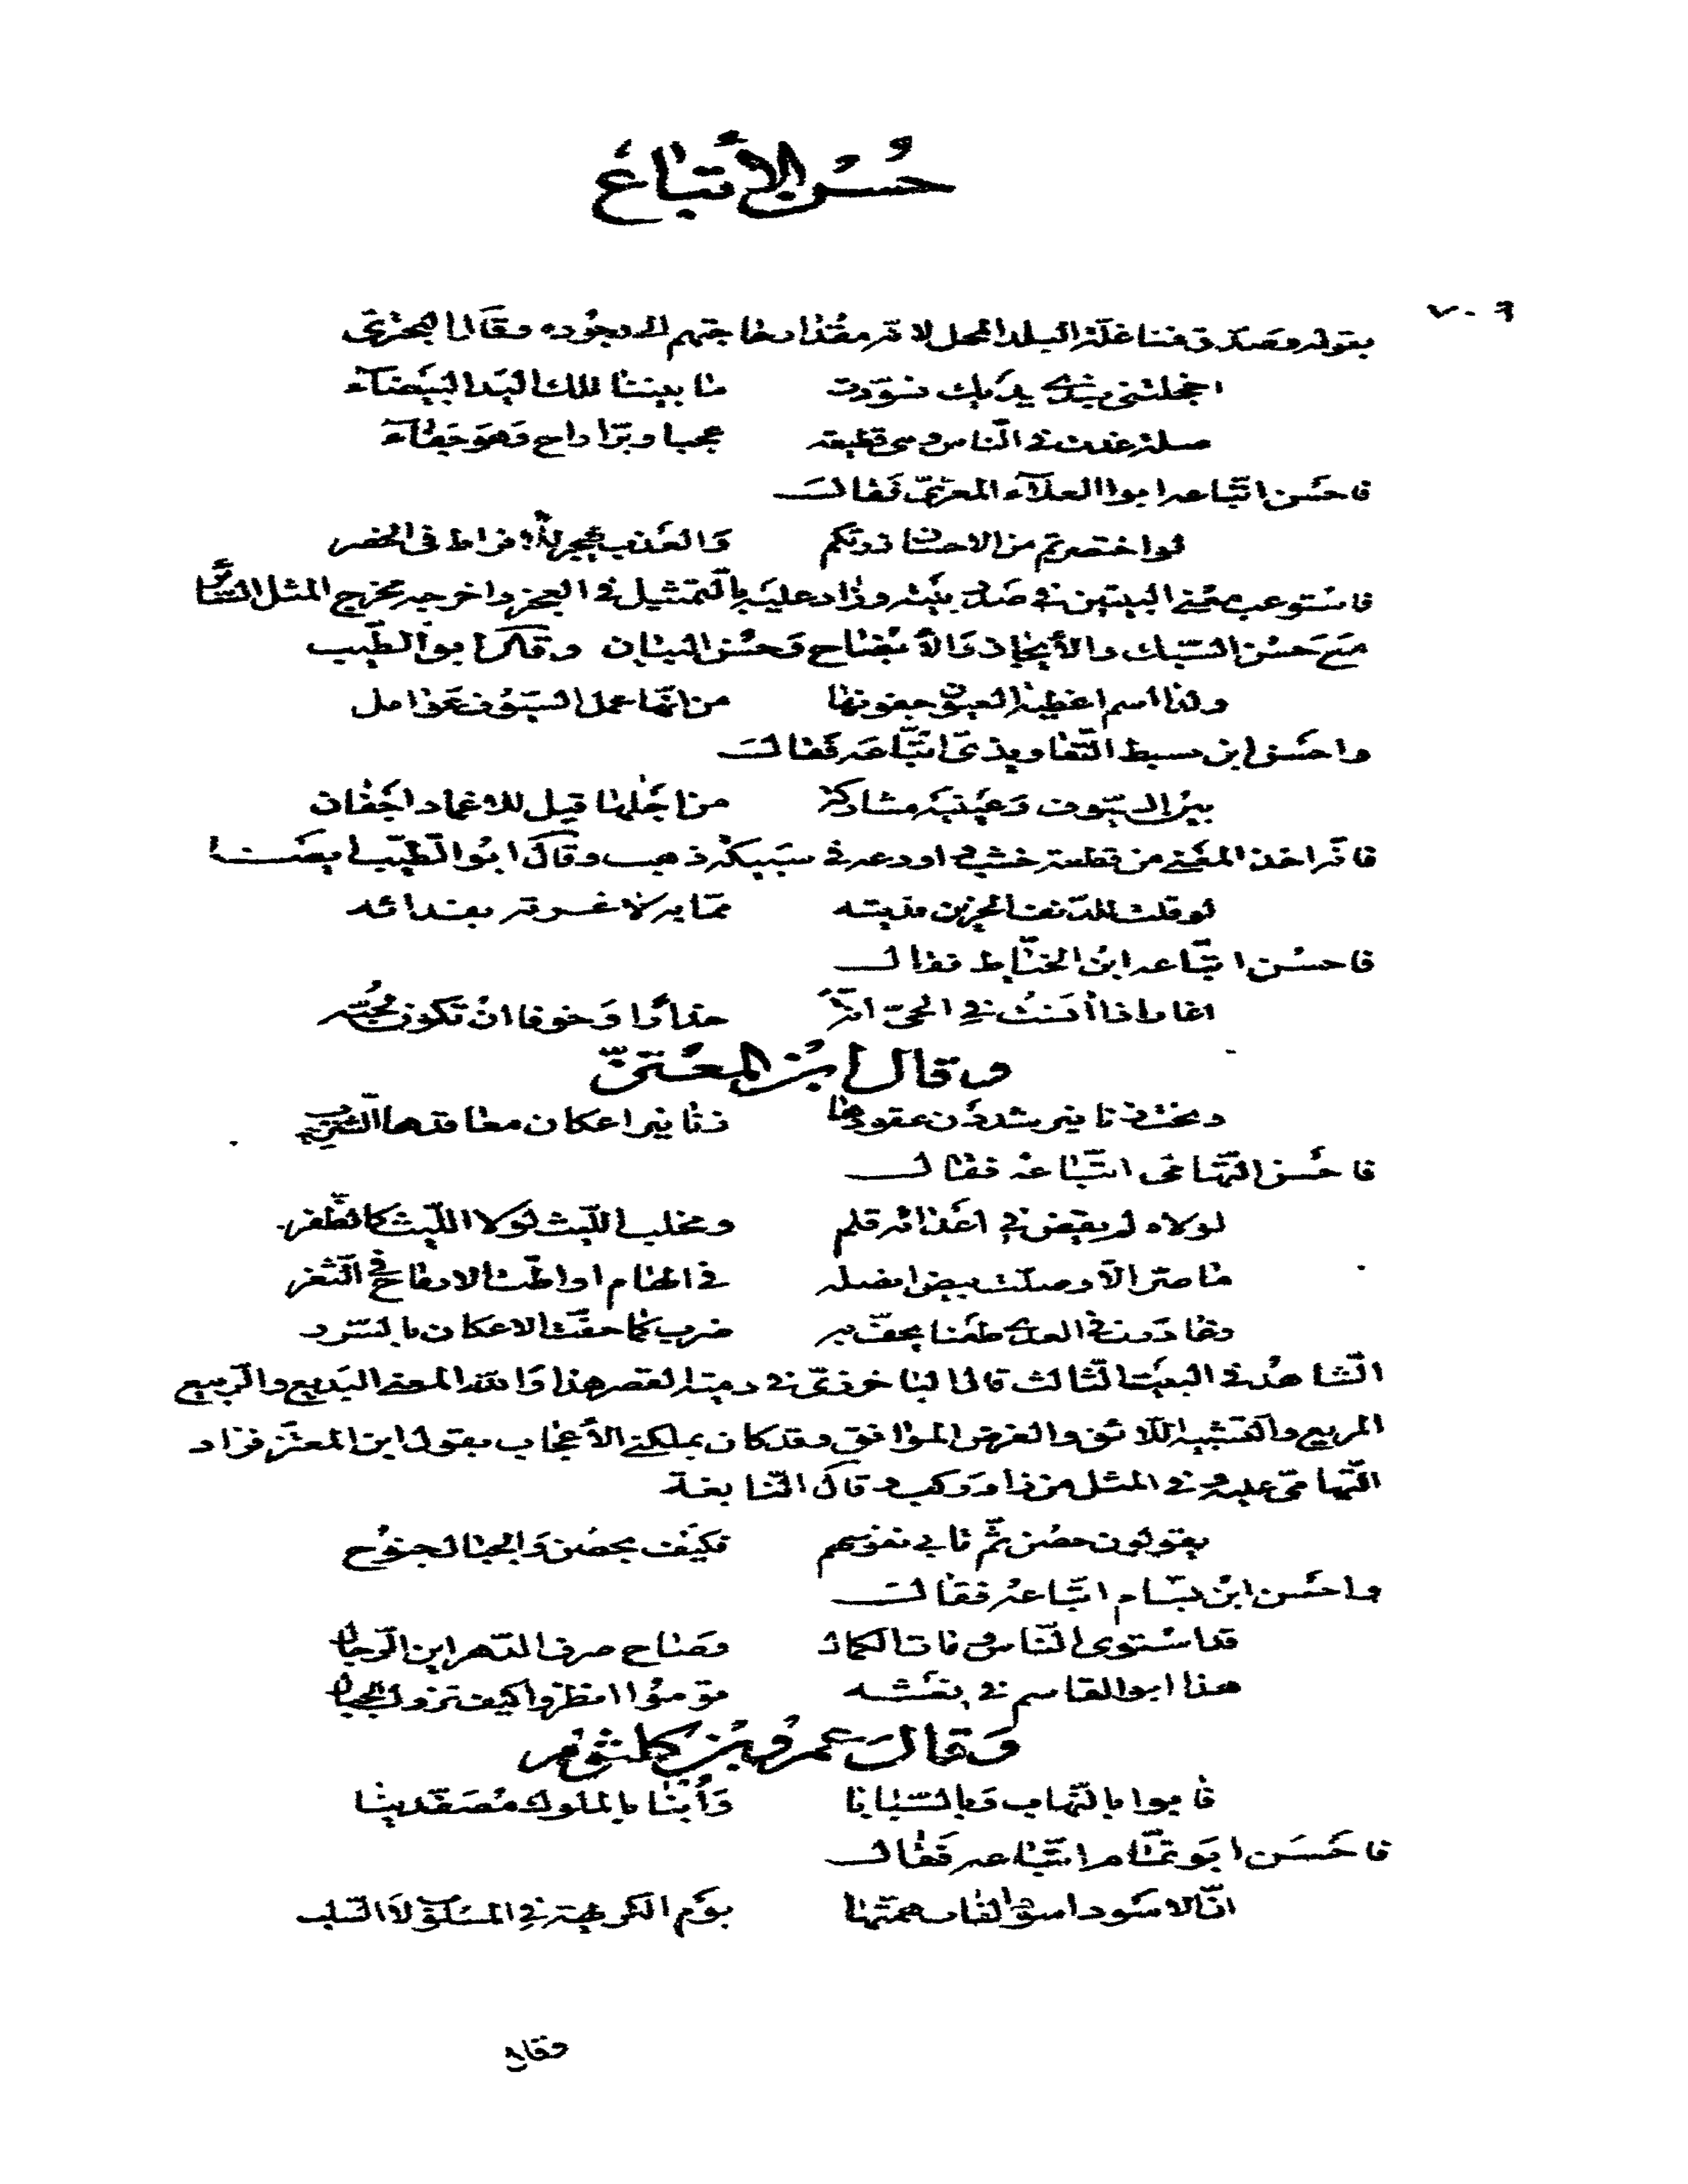 حُسْنُ الأتباعُ
٧٠٦
بقوله وصدق فناغلة البلد المحل لانه مقدار حاجتهم الى وجوده وقال البحتريّ
اخجلتنى بندى يديك فسوّدت ما بيننا تلك اليد البيضآء
صلة غدت فى الناس وهى قطيعة عجبا وبرّا راح وَهوَ جفآء
فاحسن اتّباعه ابوا العلآء المعرّىّ فقال
لواختصرتم من الاحسان زرتكم وَالعَذب يهجر للافراط فى الخصر
فاستوعب معنى البيتين فى صدر بيته وزاد عليه بالتمثيل فى العجز واخرجه مخرج المثل السّائر
مَعَ حسْن السّبك والأيجاز وَالأيضاح وَحسْن البيان وقال ابو الطّيب
ولذا اسم اغطية العيون جفونها من انّها عمل السّيُوف عَوامل
واحسن ابن سبط التّعاويذىّ اتّباعَه فقال
بين السّيوف وَعينيه مشاركة من اجلها قيل للاغماد اجفان
فانّه اخذ المعنى من قطعة خشب اودعه فى سبيكة ذهب وقال ابُوا الطّيب ايضا
لو قلت للدّنف الحزين فديته ممّا به لاغرته بفدائه
فاحسن اتّباعه ابن الخيّاط فقال
اغار اذا آنستُ فى الحىّ انّة حذارًا وَخوفا انْ تكون لحُبّه
وقال ابن المعتزّ
وتحت زنانير شددن عقودها زنانير اعكان معاقدها السّرر
فاحسن التّهامىّ اتّباعهُ فقال
لولاه لم يقض فى اعدائه قلم ومخلب اللّيث لولا اللّيث كالظّفر
ما صرّ الّا وصلّت بيض انصله فى الهام اواطّت الارماح فى الثّغر
وغادرت فى العدى طعنا يحفّ به ضرب كما حفّت الاعكان بالسّرر
الشّاهد فى البيت الثّالث قال الباخرزىّ فى دمية القصر هذا وَالله المعنى البديع والرّبيع
المريع والتّشبيه اللّائق والغرض الموافق وقد كان يملكنى الأعجاب بقول ابن المعتزّ فزاد
التّهامىّ عليه وفى المثل من زاد وركب وقال النّابغة
يقولون حصن ثمّ تابى نفوسهم فكيف بحصْن وَالجبال جنوح
واحسن ابن بسّام اتّباعهُ فقال
قد استوى النّاس ومات الكمال وَصاح صرف الدّهر اين الرّجال
هذا ابوالقاسم فى نعشه قومُوا انظروا كيف تزول الجبال
وَقال عمروُ بن كلثوم
فآبوا بالنّهاب وَبالسّبايا وَأبْنا بالملوك مُصَفّدينا
فاحسَن ابوتمّام اتّباعه فقال
انّ الاسُود اسود الغاب همّتها يوم الكريهة فى المسلوب لا السّلب
وقال